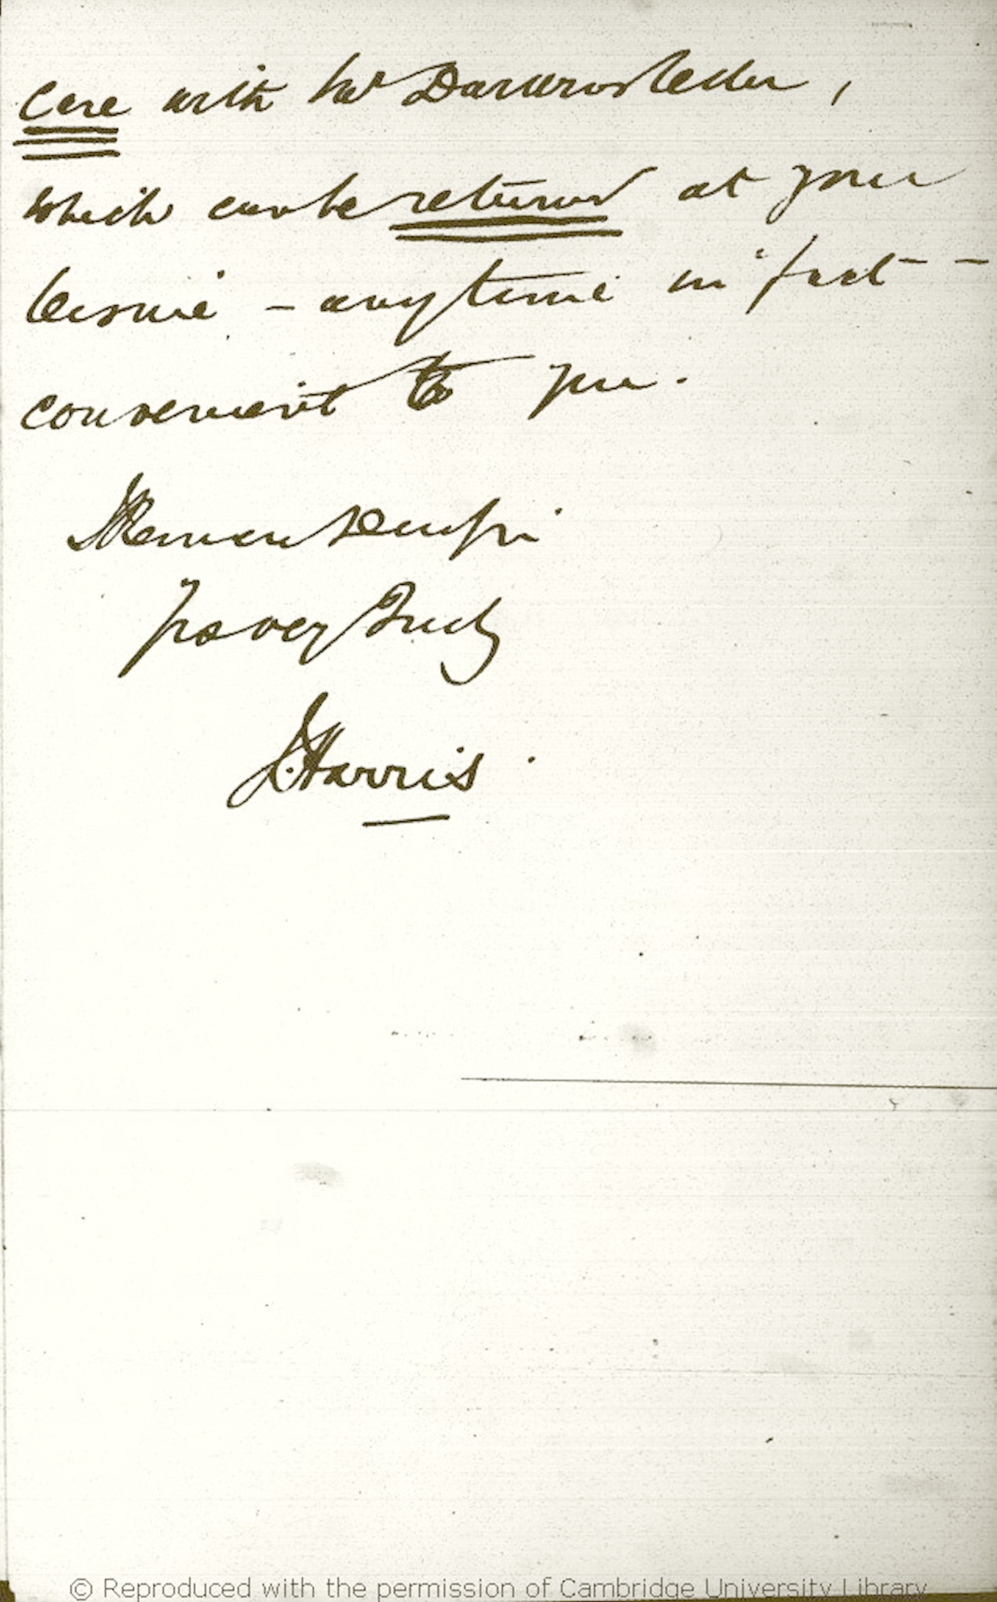 care with Mr Darwins letter,
which can be returned at your
leisure - any time in fact -
convenient to you.
I Remain dear Sir
Yrs very Truly
J. Harris.
© Reproduced with the permission of Cambridge University Library